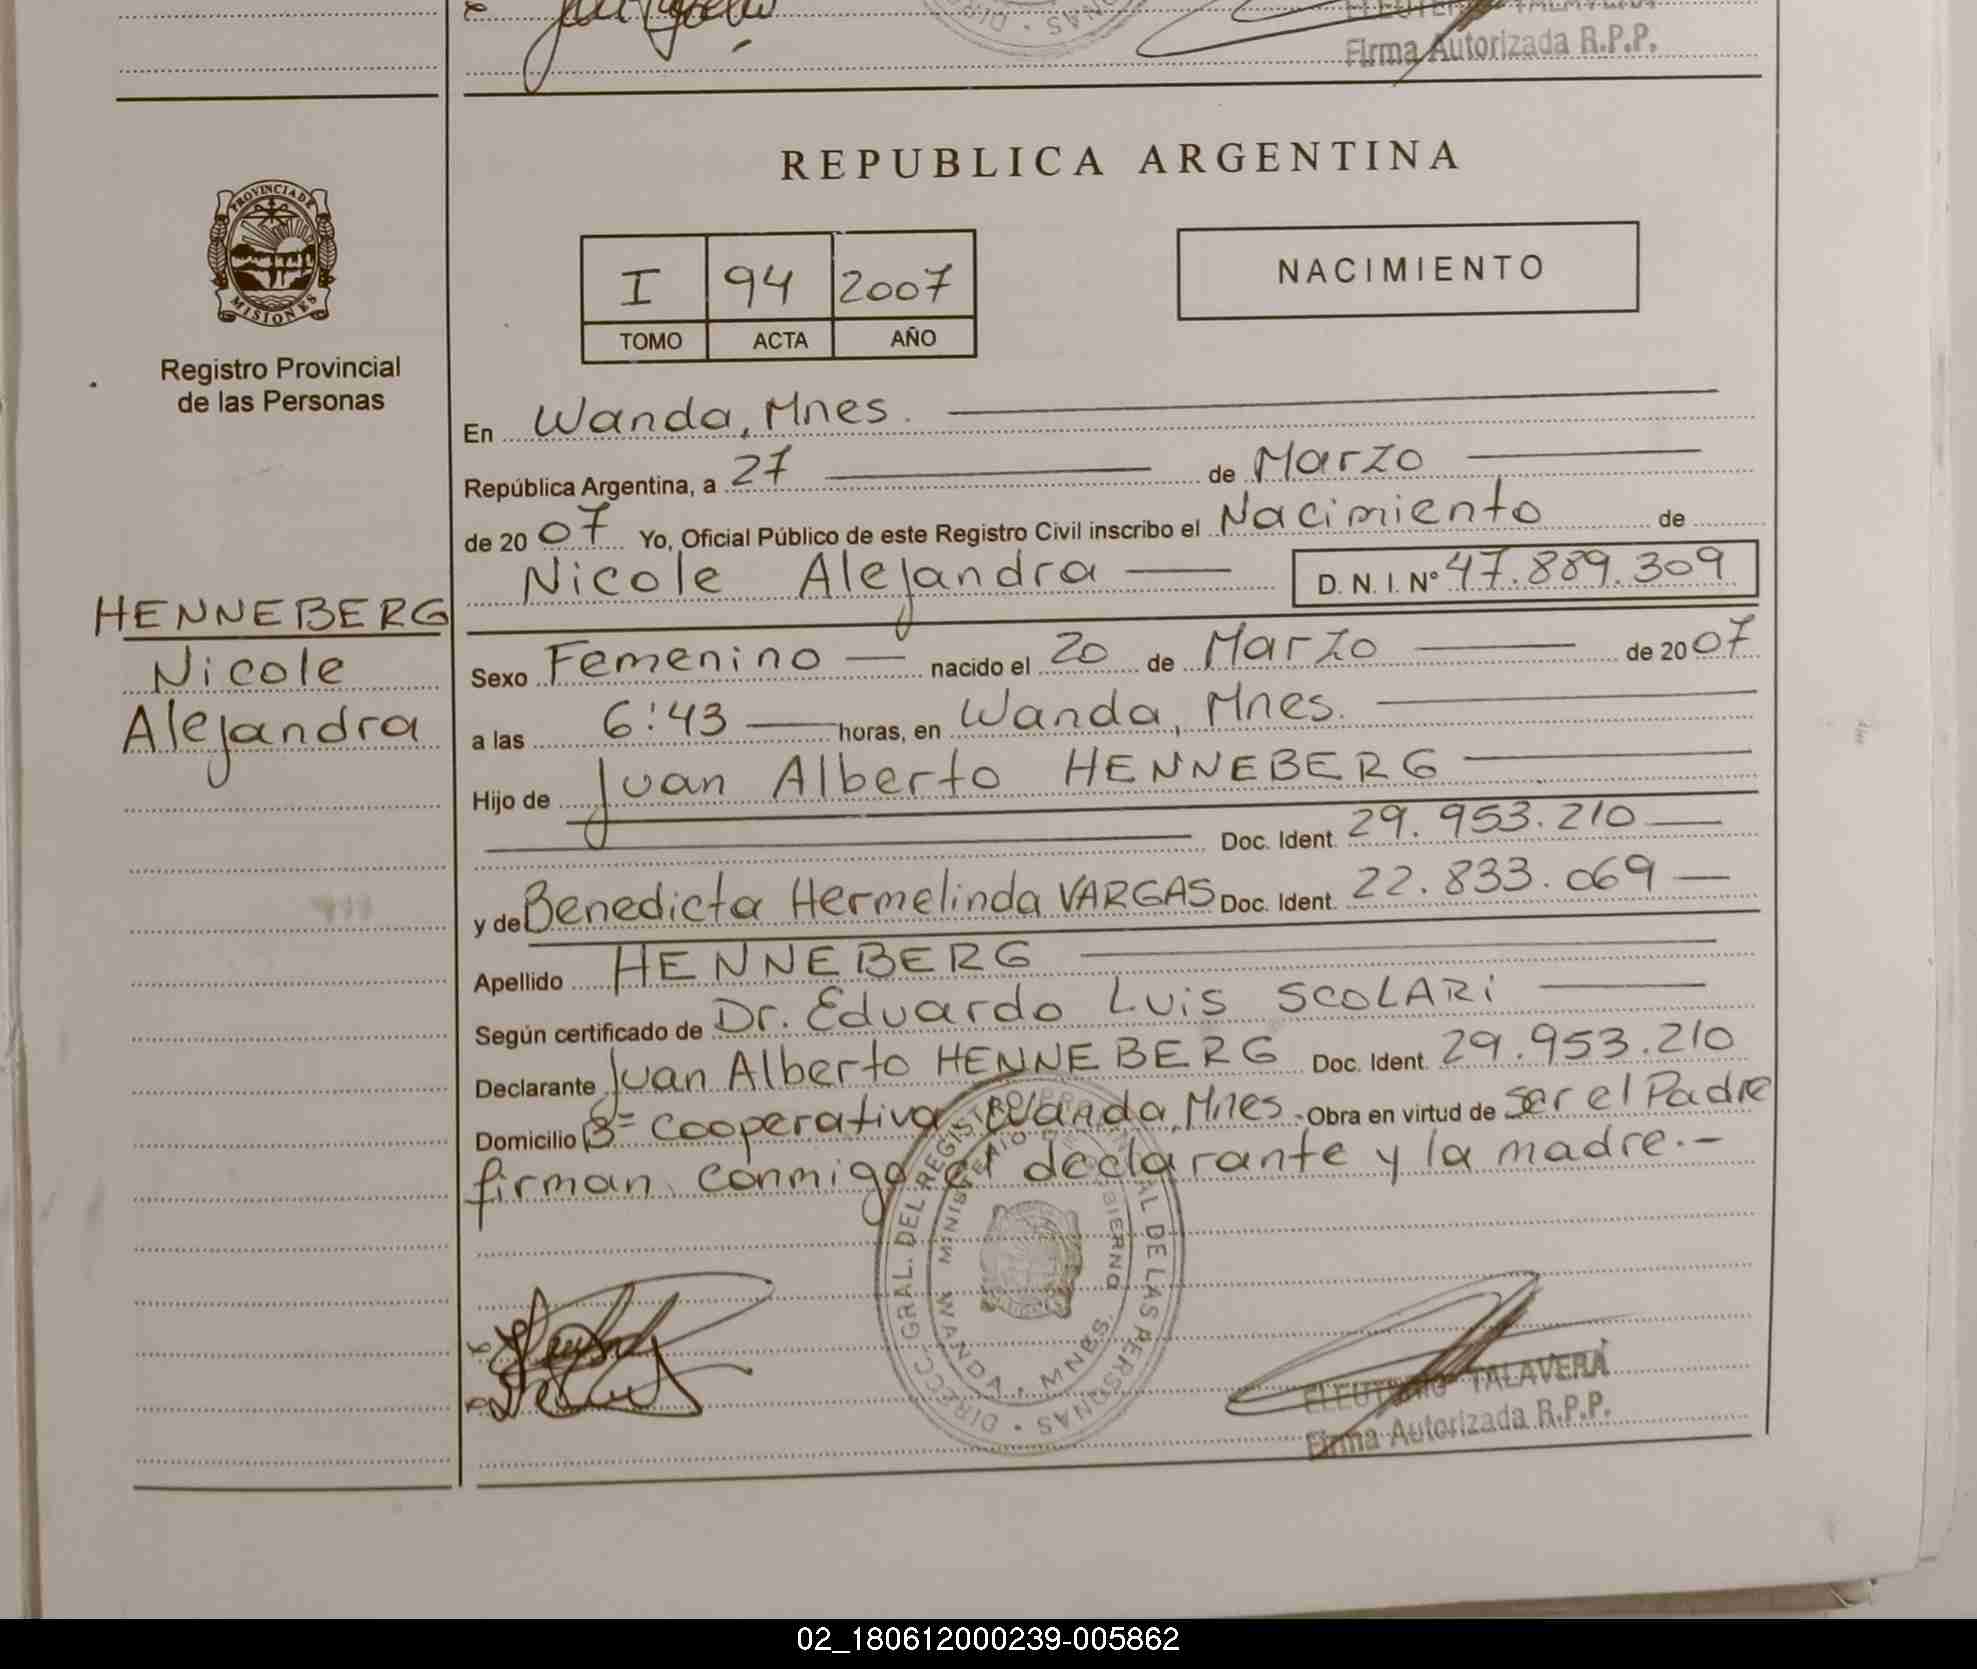 Firma Autorizada R.P.P.
REPUBLICA ARGENTINA
PROVINCIA DE
MISIONES
Registro Provincial
de las Personas
I 94 2007
TOMO ACTA AÑO
NACIMIENTO
En Wanda, Mnes.
República Argentina, a 27 de Marzo
de 2007 Yo, Oficial Público de este Registro Civil inscribo el Nacimiento de
Nicole Alejandra D. N. I. Nº 47.889.309
HENNEBERG
Nicole
Alejandra
Sexo Femenino nacido el 20 de Marzo de 2007
a las 6:43 horas, en Wanda, Mnes.
Hijo de Juan Alberto HENNEBERG
Doc. Ident. 29.953.210
y de Benedicta Hermelinda VARGAS Doc. Ident. 22.833.069
Apellido HENNEBERG
Según certificado de Dr. Eduardo Luis SCOLARi
Declarante Juan Alberto HENNEBERG Doc. Ident. 29.953.210
Domicilio Bº Cooperativa Wanda, Mnes. Obra en virtud de ser el Padre
firman conmigo el declarante y la madre.-
DIRECC. GRAL. DEL REGISTRO PROVINCIAL DE LAS PERSONAS
MINISTERIO DE GOBIERNO
WANDA - MNES.
ELEUTERIO TALAVERA
Firma Autorizada R.P.P.
02_180612000239-005862